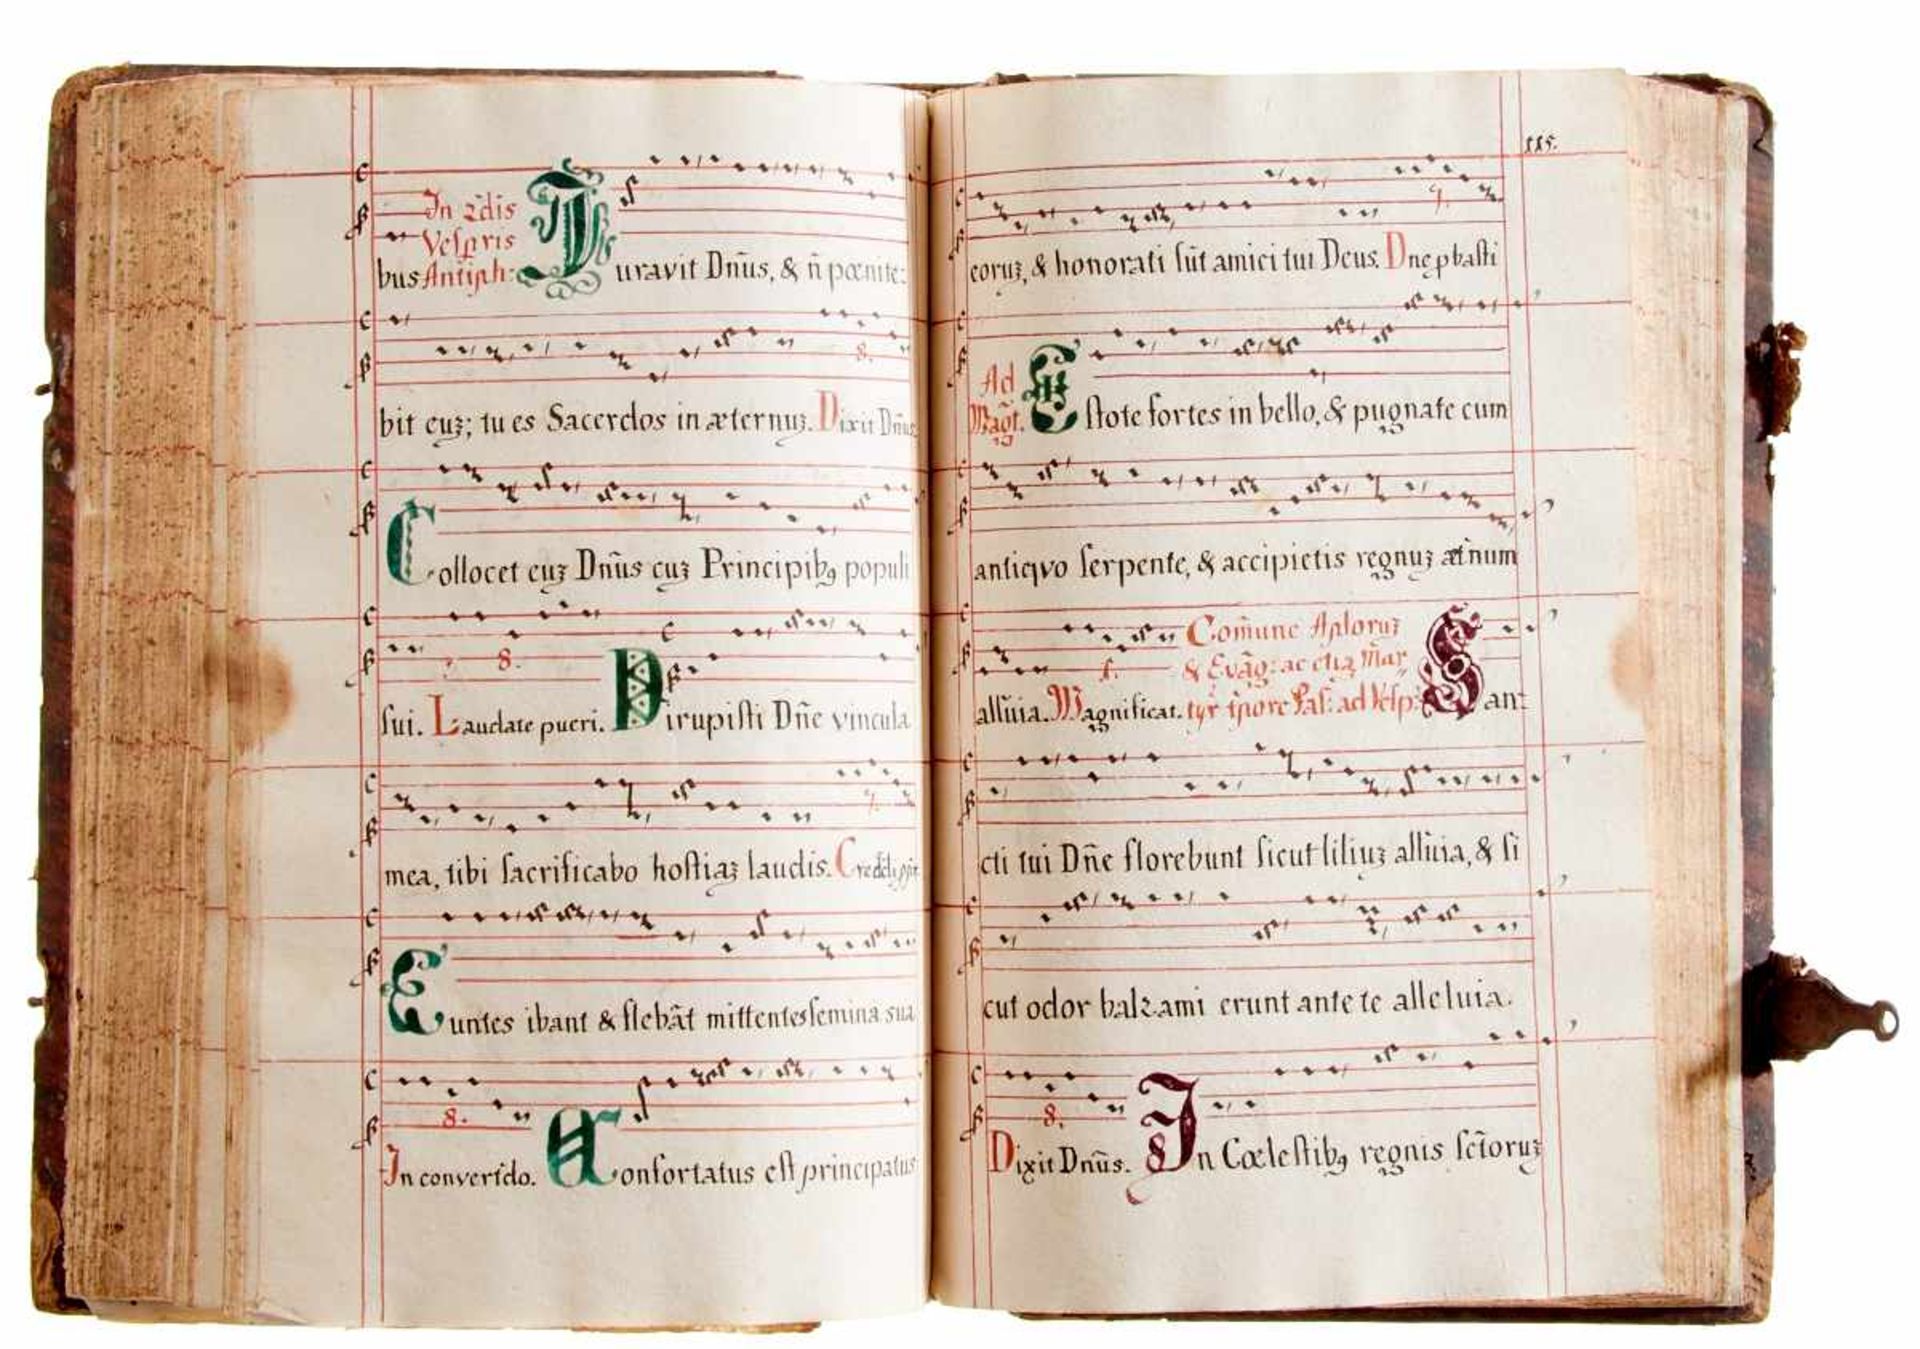 In 2dis
Vespris
bus Antiph: Juravit Dñus, & ñ pœnite:
8.
bit euʒ; tu es Sacerdos in æternuʒ. Dixit Dñus
Collocet euʒ Dñus cuʒ Principibꝰ populi
8.
sui. Laudate pueri. Dirupisti Dñe vincula
7.
mea, tibi sacrificabo hostiaʒ laudis. Credidi
Euntes ibant & flebãt mittentes semina sua
8.
In convertdo. Confortatus est principatus
115.
7.
eoruʒ, & honorati sũt amici tui Deus. Dne ꝓbasti
Ad
Magt. Estote fortes in bello, & pugnate cum
antiqvo serpente, & accipietis regnuʒ æt̃num
Com̃une Aploruʒ
& Evãg: ac etiaʒ Mar
alĩuia. Magnificat. tyr̃ tp̃ore Pas: ad Vesp: San:
cti tui Dñe florebunt sicut liliuʒ allũia, & si
cut odor balzami erunt ante te alleluia.
8.
Dixit Dnũs. In Cœlestibꝰ regnis sc̃toruʒ